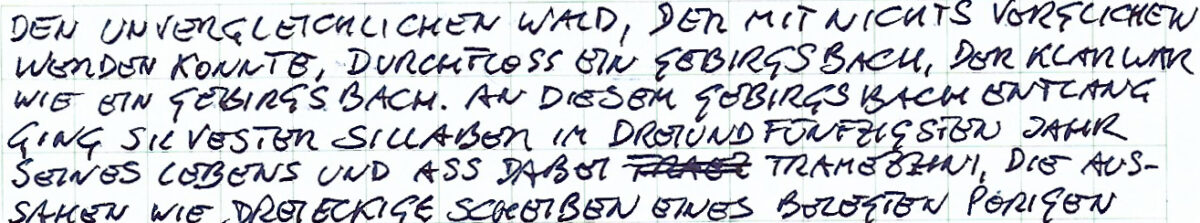 DEN UNVERGLEICHLICHEN WALD, DER MIT NICHTS VERGLICHEN
WERDEN KONNTE, DURCHFLOSS EIN GEBIRGSBACH, DER KLAR WAR
WIE EIN GEBIRGSBACH. AN DIESEM GEBIRGSBACH ENTLANG
GING SILVESTER SILLABER IM DREIUNDFÜNFZIGSTEN JAHR
SEINES LEBENS UND ASS DABEI TRAMEZZINI, DIE AUS-
SAHEN WIE DREIECKIGE SCHEIBEN EINES BELEGTEN